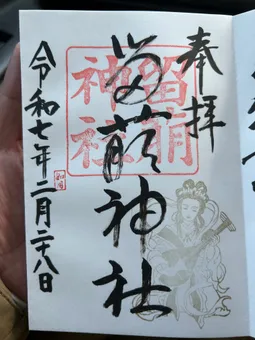 奉拝
留萌神社
留萌
神社
令和七年二月二十八日